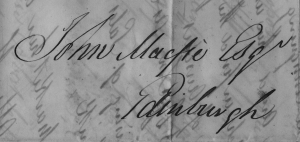 John Macfie Esqr
Edinburgh